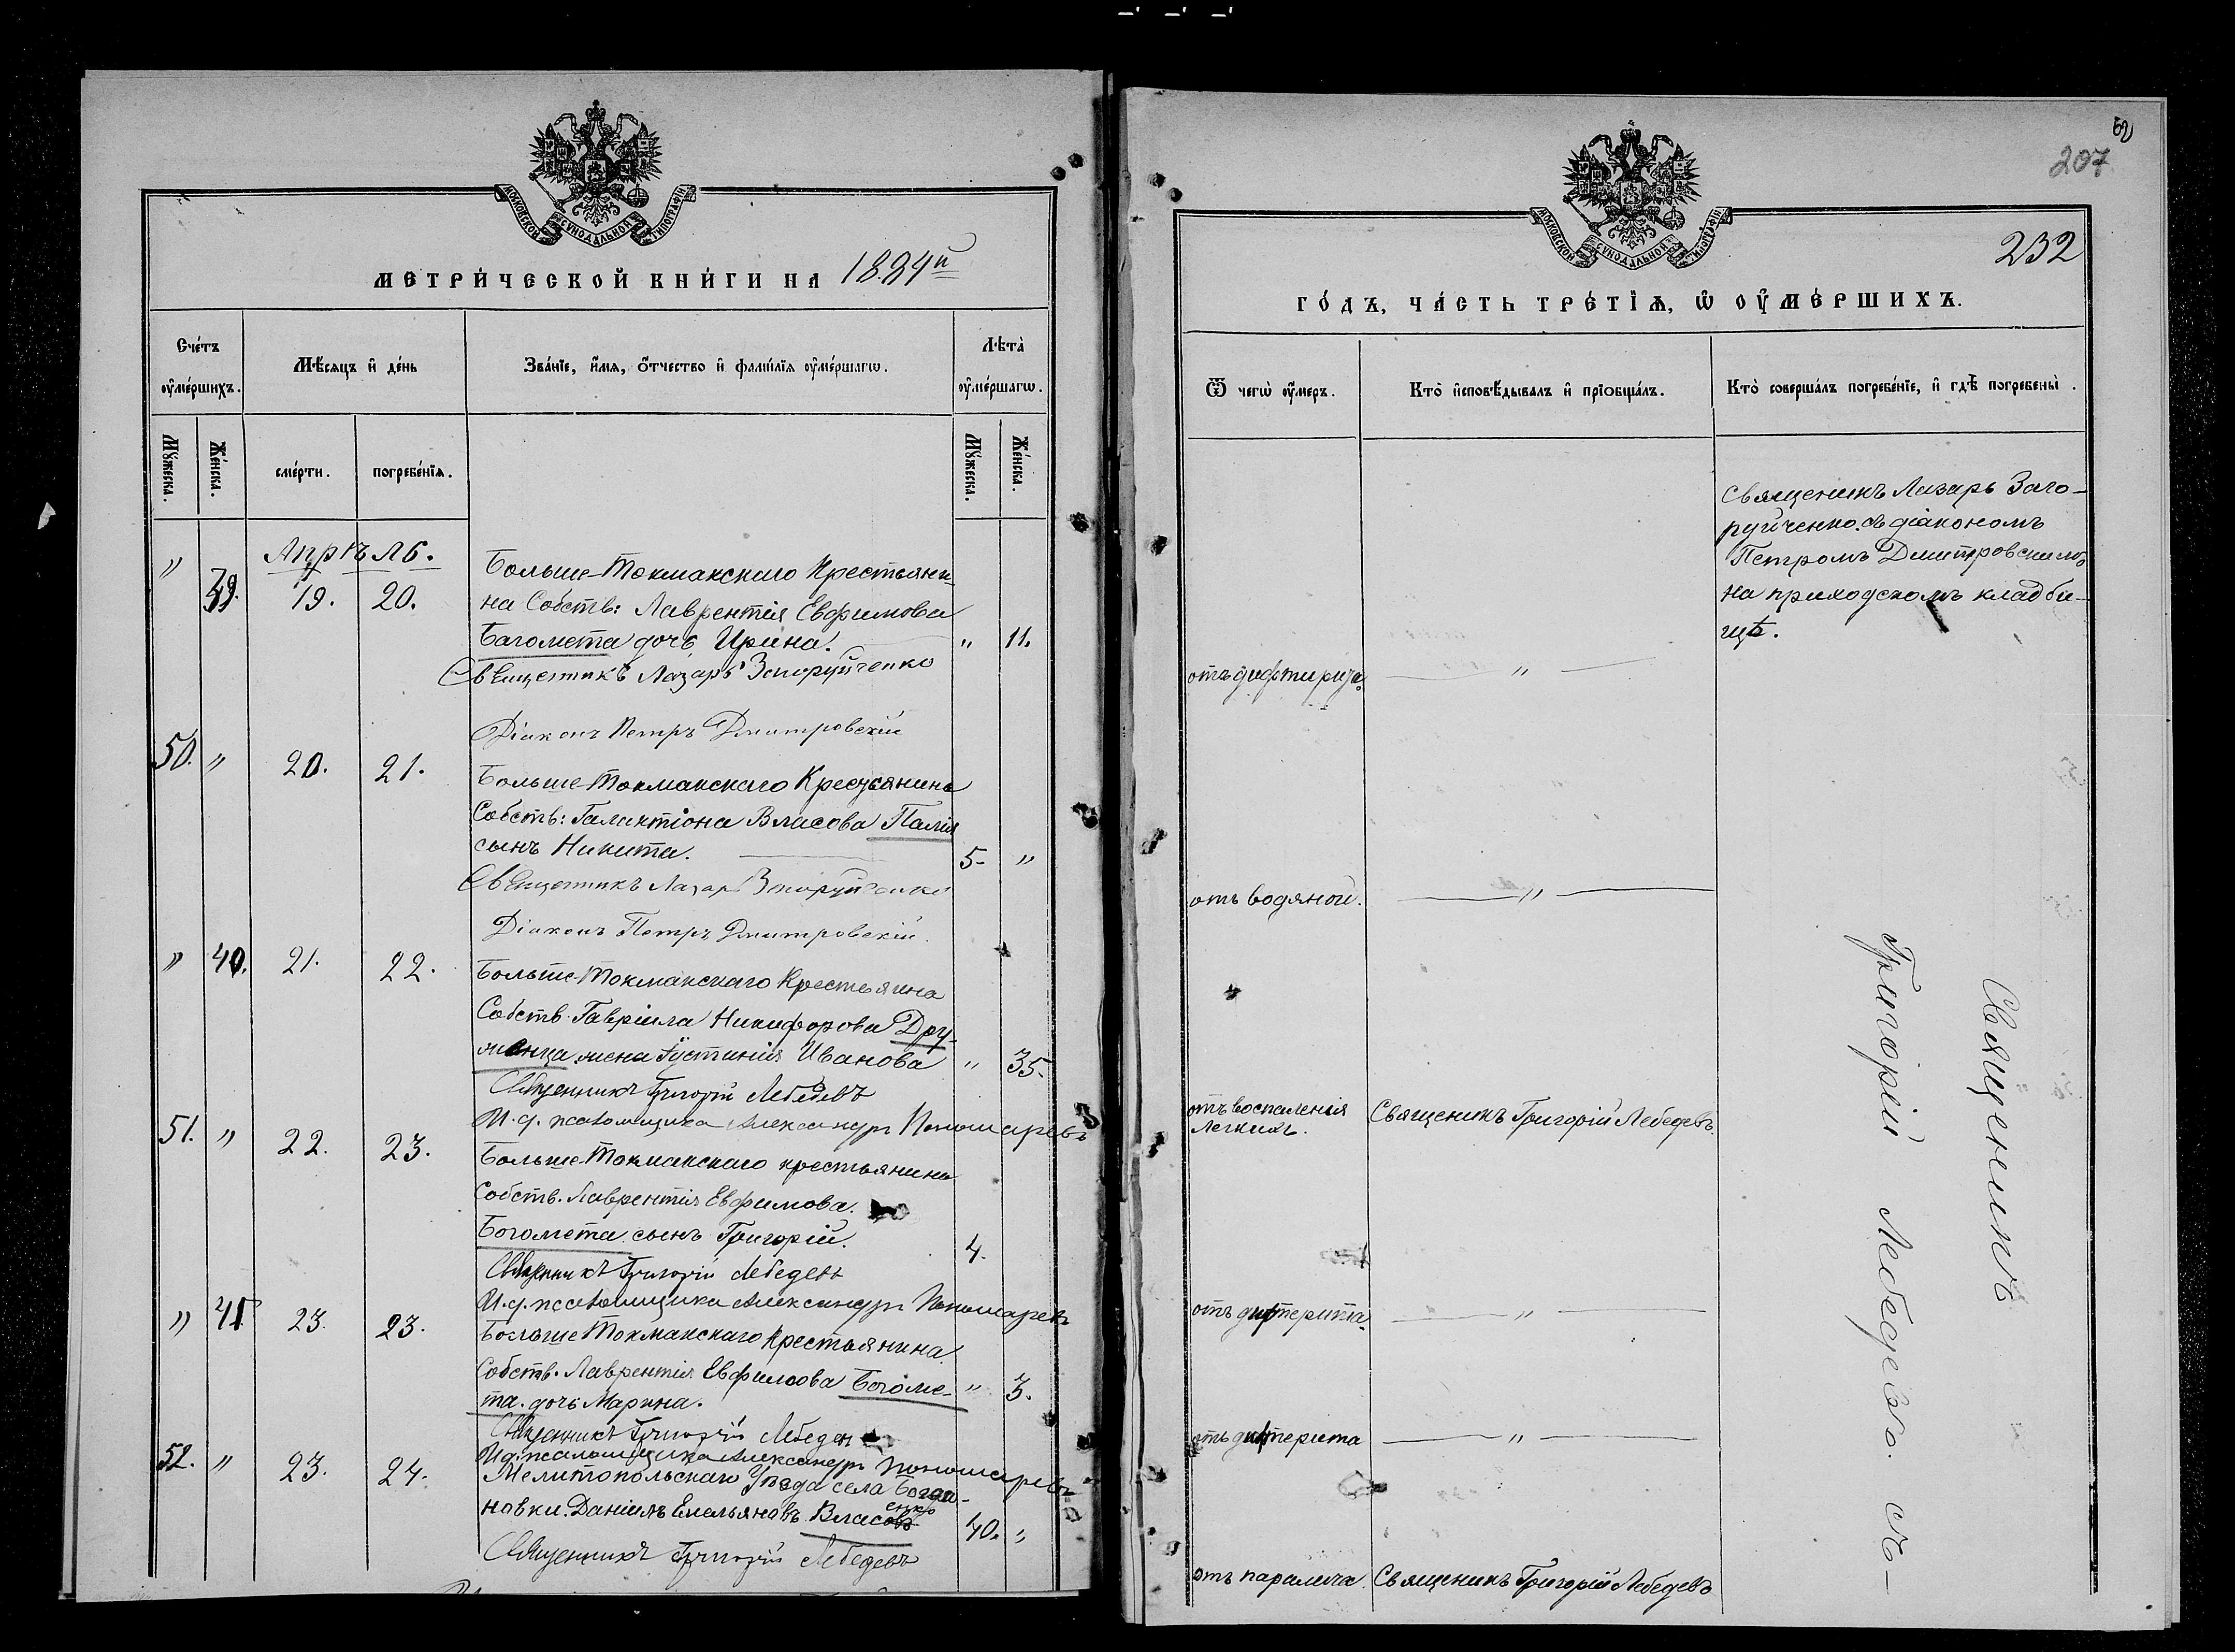 МОСКОВСКОЙ СѴНОДАЛЬНОЙ ТИПОГРАФІИ
МЕТРИ́ЧЕСКОЙ КНИ́ГИ НА 1884й
Сче́тъ оу҆ме́ршихъ.
Мѣ́сяцъ и҆ де́нь
Зва́нїе, и҆́мя, ѻ҆́тчество и҆ фами́лїя оу҆ме́ршагѡ.
Лѣта̀ оу҆ме́ршагѡ.
Мꙋ́жеска.
Же́нска.
сме́рти.
погребе́нїя.
Мꙋ́жеска.
Же́нска.
Апрѣль.
" 39. 19. 20.
Больше-Токмакскаго Крестьяни-
на Собств: Лаврентія Евфимова
Багомета дочь Ирина. " 11.
Священникъ Лазарь Загоруйченко
Діаконъ Петръ Дмитровскій
50. " 20. 21.
Больше-Токмакскаго Крестьянина
Собств: Галактіона Власова Палія
сынъ Никита. 5. "
Священникъ Лазарь Загоруйченко
Діаконъ Петръ Дмитровскій.
" 40. 21. 22.
Больше-Токмакскаго Крестьянина
Собств. Гавріила Никифорова Дру-
жена Іустинія Иванова " 35.
Священникъ Григорій Лебедевъ
И. д. псаломщика Александръ Пономаревъ
51. " 22. 23.
Больше-Токмакскаго крестьянина
Собств. Лаврентія Евфимова.
Богомета сынъ Григорій. 4.
Священникъ Григорій Лебедевъ
И. д. псаломщика Александръ Пономаревъ
" 41 23. 23.
Больше Токмакскаго Крестьянина
Собств. Лаврентія Евфимова Богоме- " 3.
та. дочь Марина.
Священникъ Григорій Лебедев
И д. псаломщика Александръ Пономаревъ
52. " 23. 24.
Мелитопольскаго Уѣзда села Богда-
новки. Даніилъ Емельяновъ Власовъ енко 40. "
Священникъ Григорій Лебедевъ
52
207
232
МОСКОВСКОЙ СѴНОДАЛЬНОЙ ТИПОГРАФІИ
ГО́ДЪ, ЧА́СТЬ ТРЕ́ТЇЯ, Ѡ҆ ОУ҆МЕ́РШИХЪ.
Ѿ чегѡ̀ оу҆́меръ.
Кто̀ и҆сповѣ́дывалъ и҆ прїѡбща́лъ.
Кто̀ соверша́лъ погребе́нїе, и҆ гдѣ̀ погребены̀.
Священикъ Лазарь Заго-
руйченко. съ діакономъ
Петромъ Дмитровскимъ
на приходскомъ кладби-
щѣ.
отъ дифтирита. "
отъ водяной. "
отъ воспаленія
легкихъ. Священикъ Григорій Лебедевъ.
отъ дифтерита. "
отъ дифтерита "
отъ паралича. Священикъ Григорій Лебедевъ
Священикъ
Григорій Лебедевъ. съ-